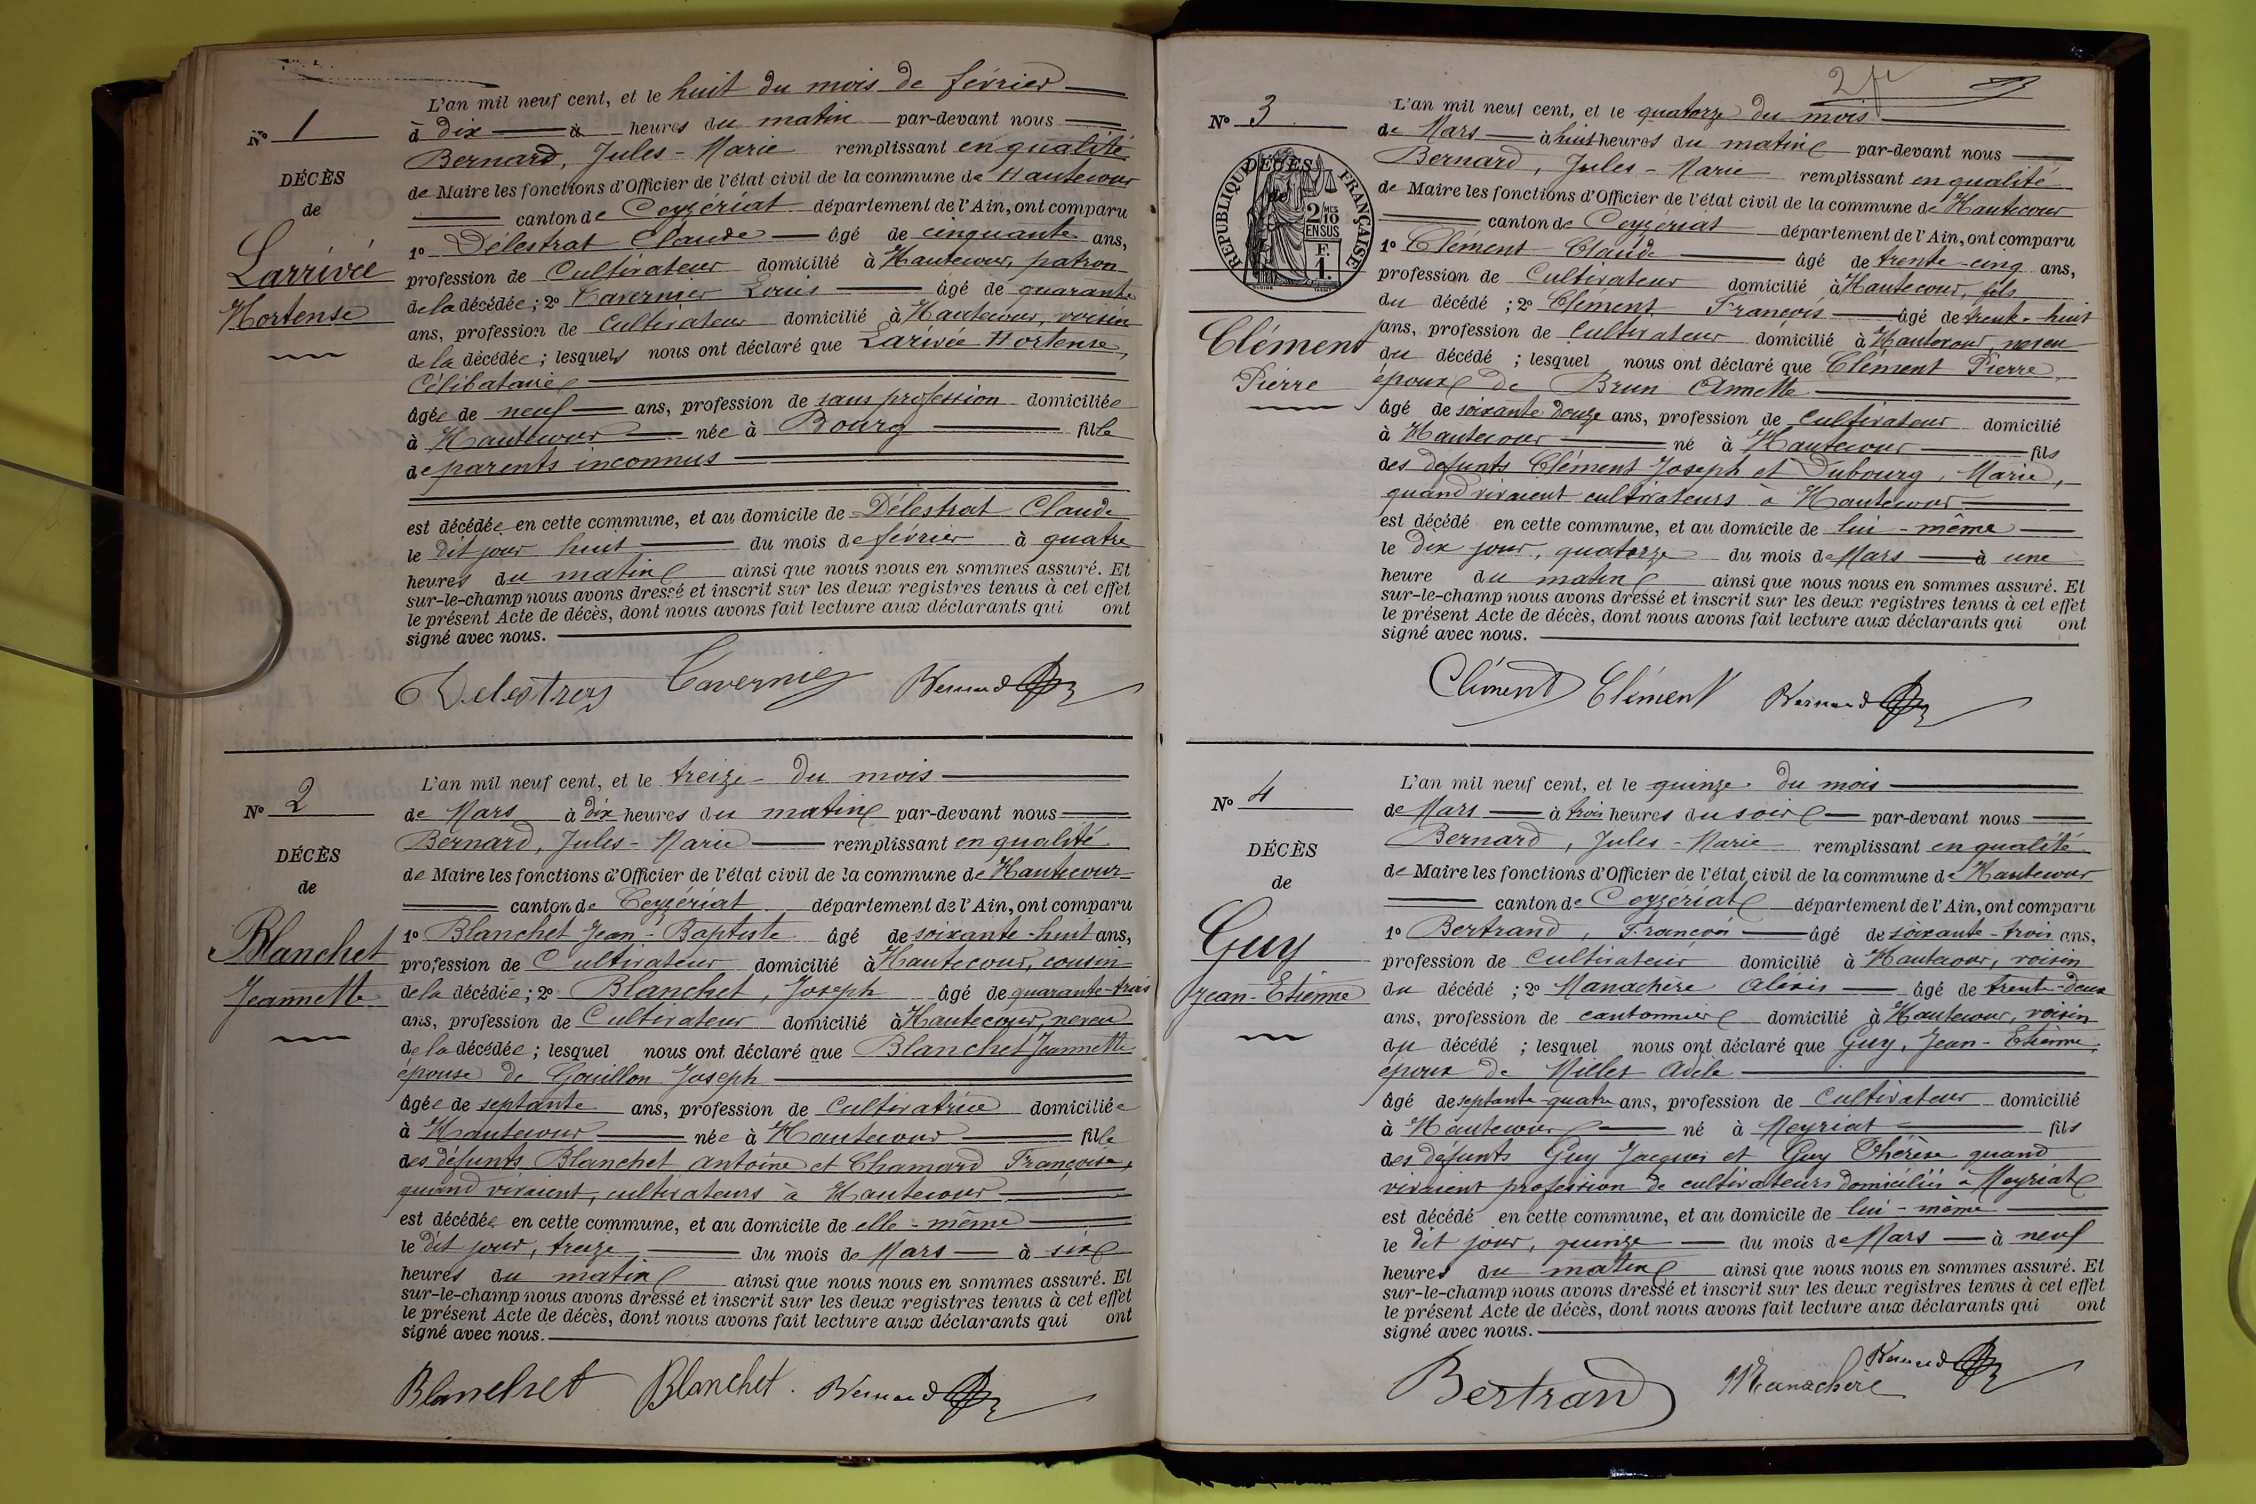 N° 1
DÉCÈS
de
Larrivée
Hortense
L'an mil neuf cent, et le huit du mois de février
à dix heures du matin par-devant nous
Bernard, Jules-Marie remplissant en qualité
de Maire les fonctions d'Officier de l'état civil de la commune de Hautecour
canton de Ceyzériat département de l'Ain, ont comparu
1° Délestrat Claude âgé de cinquante ans,
profession de Cultivateur domicilié à Hautecour, patron
de la décédée; 2° Tavernier Louis âgé de quarante
ans, profession de Cultivateur domicilié à Hautecour, voisin
de la décédée; lesquels nous ont déclaré que Larivée Hortense,
Célibataire
âgée de neuf ans, profession de sans profession domiciliée
à Hautecour née à Bourg fille
de parents inconnus
est décédée en cette commune, et au domicile de Délestrat Claude
le dit jour huit du mois de février à quatre
heures du matin ainsi que nous nous en sommes assuré. Et
sur-le-champ nous avons dressé et inscrit sur les deux registres tenus à cet effet
le présent Acte de décès, dont nous avons fait lecture aux déclarants qui ont
signé avec nous.
Tavernier Bernard
N° 2
DÉCÈS
de
Blanchet
Jeannette
L'an mil neuf cent, et le treize du mois
de Mars à dix heures du matin par-devant nous
Bernard, Jules-Marie remplissant en qualité
de Maire les fonctions d'Officier de l'état civil de la commune de Hautecour
canton de Ceyzériat département de l'Ain, ont comparu
1° Blanchet Jean-Baptiste âgé de soixante-huit ans,
profession de Cultivateur domicilié à Hautecour, cousin
de la décédée; 2° Blanchet, Joseph âgé de quarante-trois
ans, profession de Cultivateur domicilié à Hautecour, neveu
de la décédée; lesquel nous ont déclaré que Blanchet Jeannette
épouse de Gouillon Joseph
âgée de septante ans, profession de Cultivatrice domiciliée
à Hautecour née à Hautecour fille
des défunts Blanchet Antoine et Chamard Françoise,
quand vivaient, cultivateurs à Hautecour
est décédée en cette commune, et au domicile de elle-même
le dit jour, treize, du mois de Mars à six
heures du matin ainsi que nous nous en sommes assuré. Et
sur-le-champ nous avons dressé et inscrit sur les deux registres tenus à cet effet
le présent Acte de décès, dont nous avons fait lecture aux déclarants qui ont
signé avec nous.
Blanchet Blanchet. Bernard
2
N° 3
DÉCÈS
de
RÉPUBLIQUE FRANÇAISE
2 MES
10
EN SUS
F.
1.
Clément
Pierre
L'an mil neuf cent, et le quatorze du mois
de Mars à huit heures du matin par-devant nous
Bernard, Jules-Marie remplissant en qualité
de Maire les fonctions d'Officier de l'état civil de la commune de Hautecour
canton de Ceyzériat département de l'Ain, ont comparu
1° Clément Claude âgé de trente-cinq ans,
profession de Cultivateur domicilié à Hautecour, fils
du décédé; 2° Clément François âgé de trente-huit
ans, profession de Cultivateur domicilié à Hautecour, neveu
du décédé; lesquel nous ont déclaré que Clément Pierre,
époux de Brun Annette
âgé de soixante douze ans, profession de Cultivateur domicilié
à Hautecour né à Hautecour fils
des défunts Clément Joseph et Dubourg, Marie,
quand vivaient cultivateurs à Hautecour
est décédé en cette commune, et au domicile de lui-même
le dix jour, quatorze du mois de Mars à une
heure du matin ainsi que nous nous en sommes assuré. Et
sur-le-champ nous avons dressé et inscrit sur les deux registres tenus à cet effet
le présent Acte de décès, dont nous avons fait lecture aux déclarants qui ont
signé avec nous.
Clément Clément Bernard
N° 4
DÉCÈS
de
Guy
Jean-Etienne
L'an mil neuf cent, et le quinze du mois
de Mars à trois heures du soir par-devant nous
Bernard, Jules-Marie remplissant en qualité
de Maire les fonctions d'Officier de l'état civil de la commune de Hautecour
canton de Ceyzériat département de l'Ain, ont comparu
1° Bertrand, François âgé de soixante-trois ans,
profession de Cultivateur domicilié à Hautecour, voisin
du décédé; 2° Manachère Aléxis âgé de trente-deux
ans, profession de cantonnier domicilié à Hautecour, voisin
du décédé; lesquel nous ont déclaré que Guy, Jean-Etienne,
époux de Millet Adèle
âgé de septante-quatre ans, profession de Cultivateur domicilié
à Hautecour né à Neyriat fils
des défunts Guy Jacques et Guy Thérèse quand
vivaient profession de cultivateurs domiciliés à Meyriat
est décédé en cette commune, et au domicile de lui-même
le dit jour, quinze du mois de Mars à neuf
heures du matin ainsi que nous nous en sommes assuré. Et
sur-le-champ nous avons dressé et inscrit sur les deux registres tenus à cet effet
le présent Acte de décès, dont nous avons fait lecture aux déclarants qui ont
signé avec nous.
Bertrand Manachère Bernard